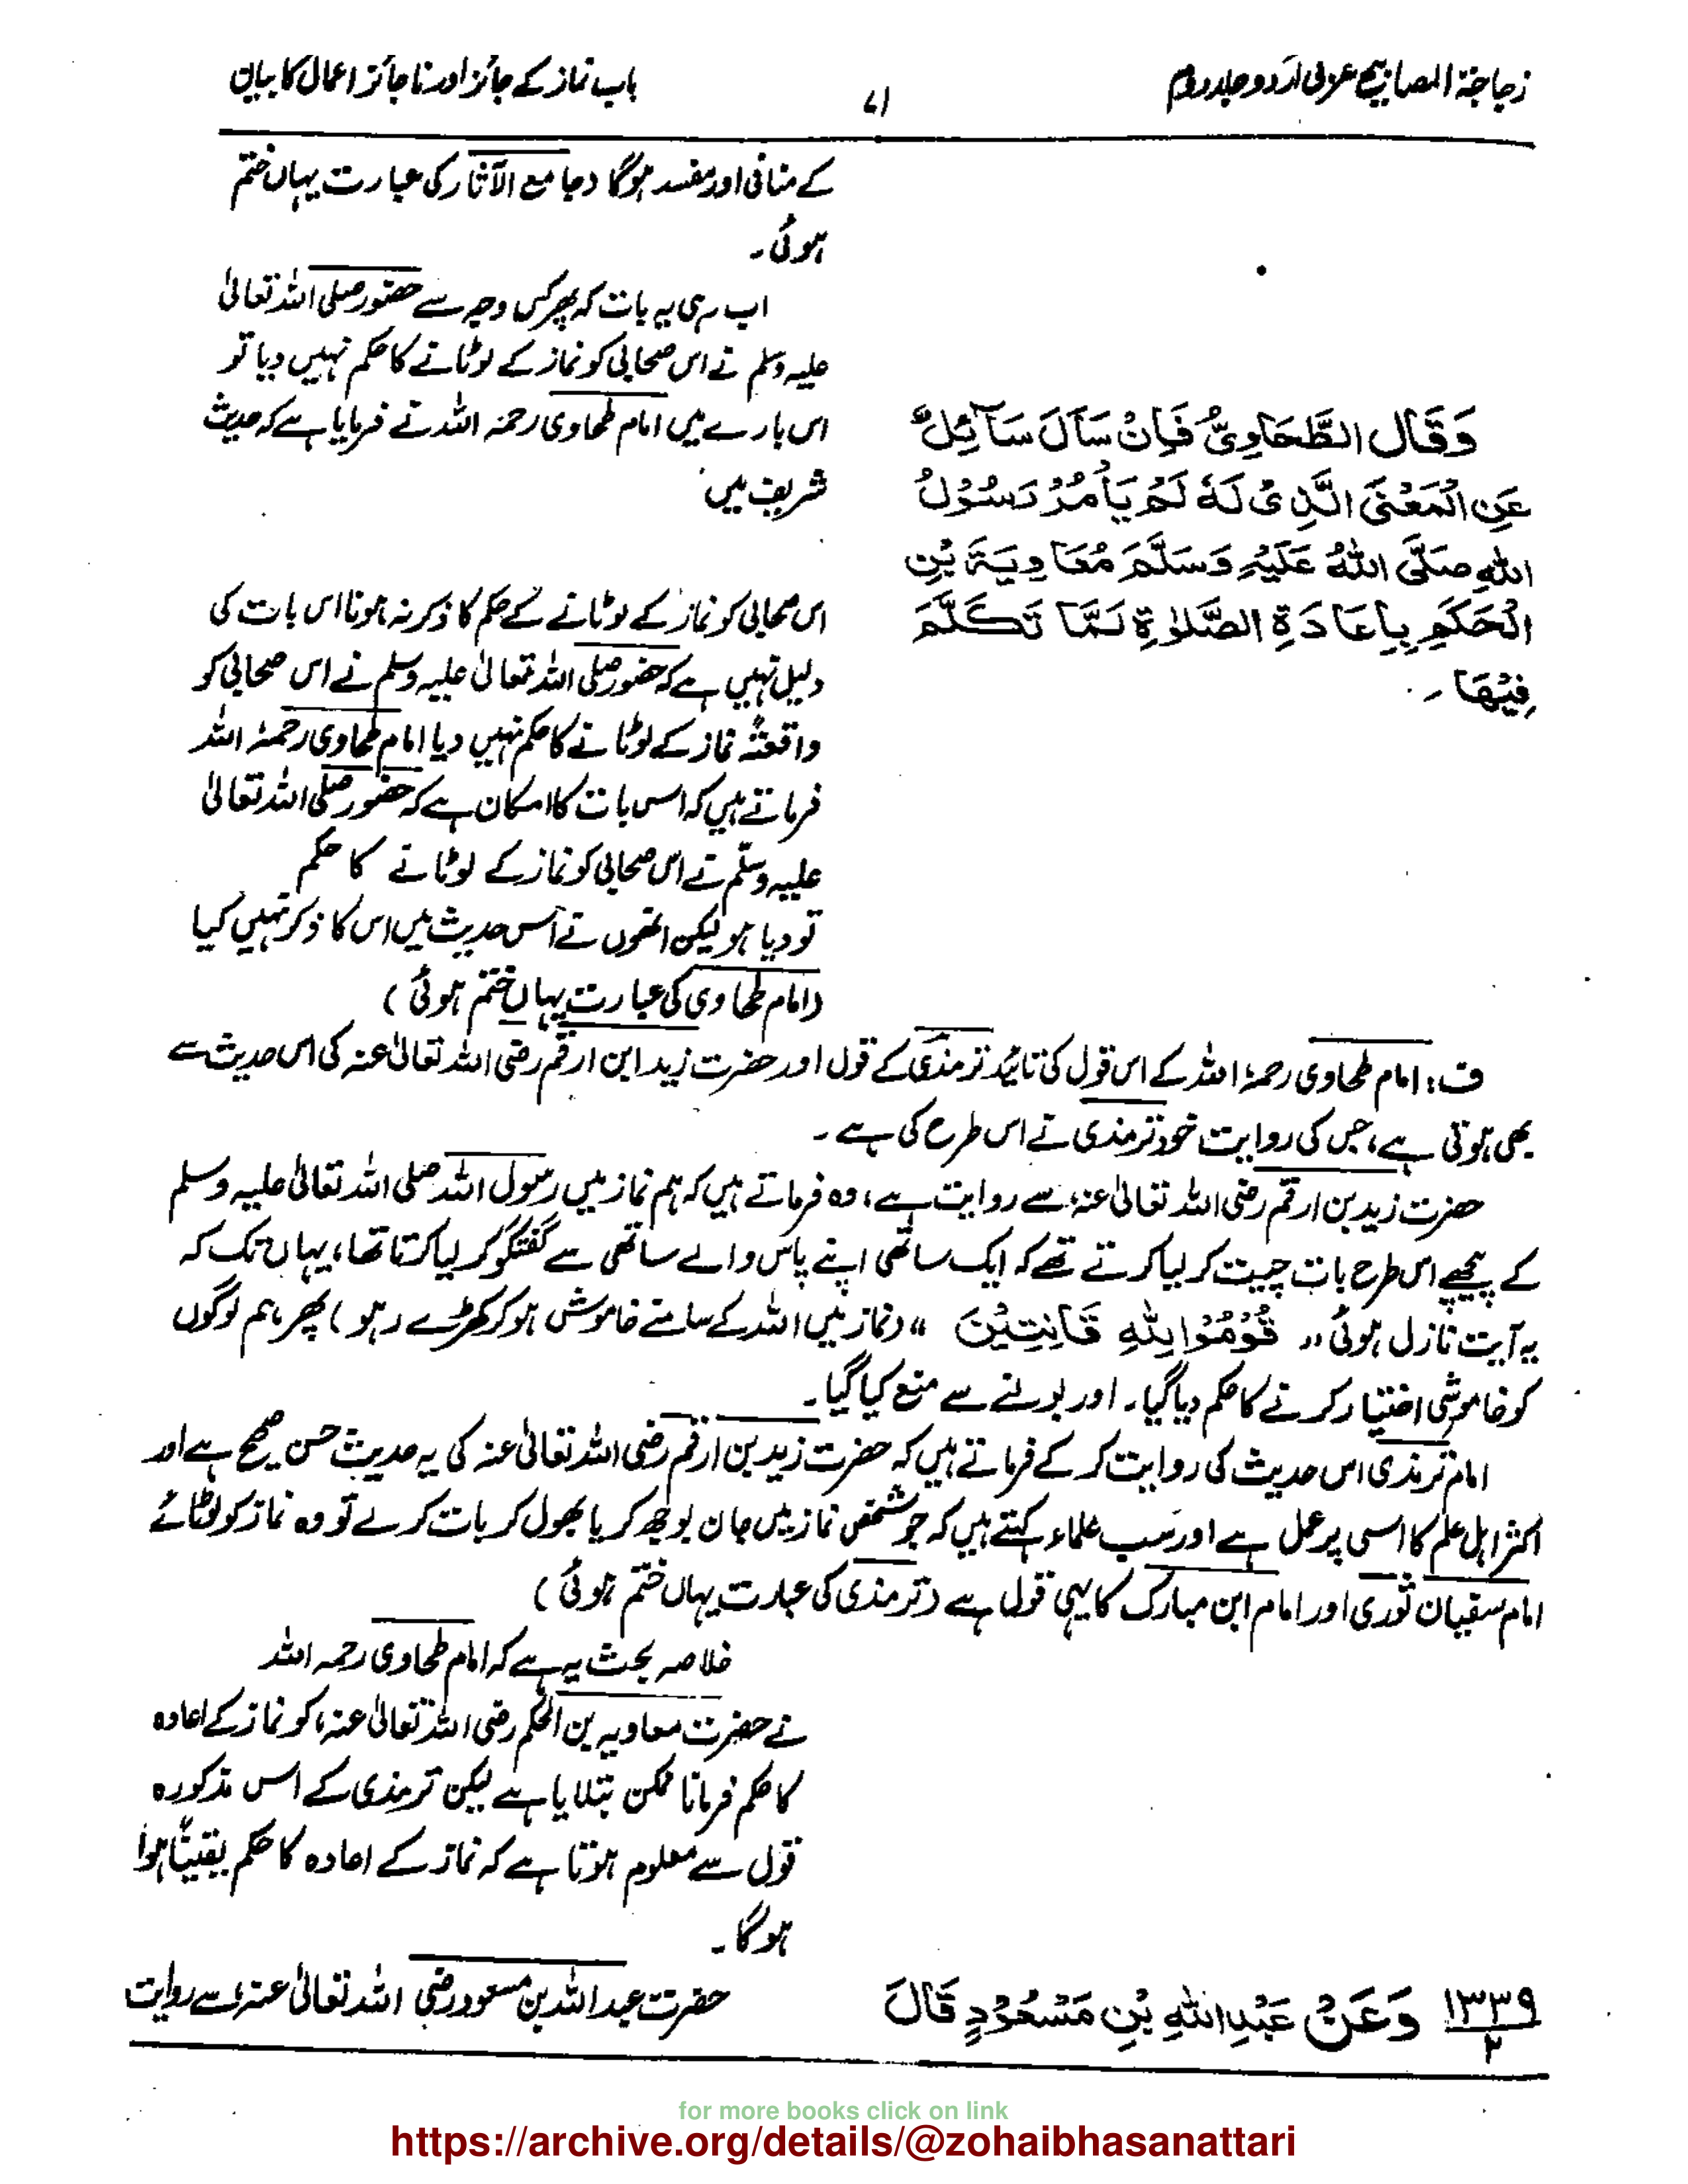 زجاجۃ المصابیح عربی اردو جلد دوم
۷۱
باب نماز کے جائز اور ناجائز اعمال کا بیان
کے منافی اور مفسد ہوگا (جامع الآثار کی عبارت یہاں ختم
ہوئی۔
اب رہی یہ بات کہ پھر کس وجہ سے حضور صلی اللہ تعالیٰ
علیہ وسلم نے اس صحابی کو نماز کے لوٹانے کا حکم نہیں دیا تو
اس بارے میں امام طحاوی رحمۃ اللہ نے فرمایا ہے کہ حدیث
شریف میں
وَقَالَ الطَّحَاوِيُّ فَإِنْ سَأَلَ سَآئِلٌ
عَنِ الْمَعْنَى الَّذِيْ لَهٗ لَمْ يَأْمُرْ رَسُوْلُ
اللهِ صَلَّى اللهُ عَلَيْهِ وَسَلَّمَ مُعَاوِيَةَ بْنِ
الْحَكَمِ بِإِعَادَةِ الصَّلٰوةِ لَمَّا تَكَلَّمَ
فِيْهَا۔
اس صحابی کو نماز کے لوٹانے کے حکم کا ذکر نہ ہونا اس بات کی
دلیل نہیں ہے کہ حضور صلی اللہ تعالیٰ علیہ وسلم نے اس صحابی کو
واقعتہً نماز کے لوٹانے کا حکم نہیں دیا امام طحاوی رحمۃ اللہ
فرماتے ہیں کہ اس بات کا امکان ہے کہ حضور صلی اللہ تعالیٰ
علیہ وسلم نے اس صحابی کو نماز کے لوٹانے کا حکم
تو دیا ہو لیکن انھوں نے اس حدیث میں اس کا ذکر نہیں کیا
(امام طحاوی کی عبارت یہاں ختم ہوئی)
ف: امام طحاوی رحمۃ اللہ کے اس قول کی تائید ترمذی کے قول اور حضرت زید ابن ارقم رضی اللہ تعالیٰ عنہ کی اس حدیث سے
بھی ہوتی ہے، جس کی روایت خود ترمذی نے اس طرح کی ہے۔
حضرت زید بن ارقم رضی اللہ تعالیٰ عنہ، سے روایت ہے، وہ فرماتے ہیں کہ ہم نماز میں رسول اللہ صلی اللہ تعالیٰ علیہ وسلم
کے پیچھے اس طرح بات چیت کر لیا کرتے تھے کہ ایک ساتھی اپنے پاس والے ساتھی سے گفتگو کر لیا کرتا تھا، یہاں تک کہ
یہ آیت نازل ہوئی "قُوْمُوْا لِلّٰهِ قَانِتِيْنَ" (نماز میں اللہ کے سامنے خاموش ہو کر کھڑے رہو) پھر ہم لوگوں
کو خاموشی اختیار کرنے کا حکم دیا گیا۔ اور بولنے سے منع کیا گیا۔
امام ترمذی اس حدیث کی روایت کر کے فرماتے ہیں کہ حضرت زید بن ارقم رضی اللہ تعالیٰ عنہ کی یہ حدیث حسن صحیح ہے اور
اکثر اہل علم کا اسی پر عمل ہے اور سب علماء کہتے ہیں کہ جو شخص نماز میں جان بوجھ کر یا بھول کر بات کرے تو وہ نماز کو لوٹائے
امام سفیان ثوری اور امام ابن مبارک کا یہی قول ہے (ترمذی کی عبارت یہاں ختم ہوئی)
خلاصہ بحث یہ ہے کہ امام طحاوی رحمہ اللہ
نے حضرت معاویہ بن الحکم رضی اللہ تعالیٰ عنہ، کو نماز کے اعادہ
کا حکم فرمانا ممکن بتلایا ہے لیکن ترمذی کے اس مذکورہ
قول سے معلوم ہوتا ہے کہ نماز کے اعادہ کا حکم یقیناً ہوا
ہوگا۔
۱۳۳۹/۲ وَعَنْ عَبْدِ اللهِ بْنِ مَسْعُوْدٍ قَالَ
حضرت عبد اللہ بن مسعود رضی اللہ تعالیٰ عنہ، سے روایت
for more books click on link
https://archive.org/details/@zohaibhasanattari